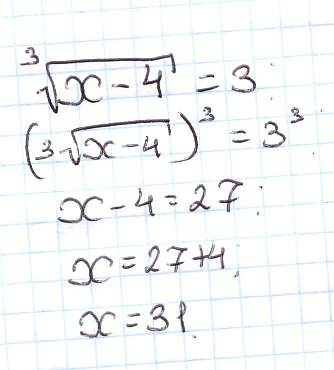 ∛(x-4) = 3;
(∛(x-4))³ = 3³;
x-4=27;
x=27+4;
x=31.